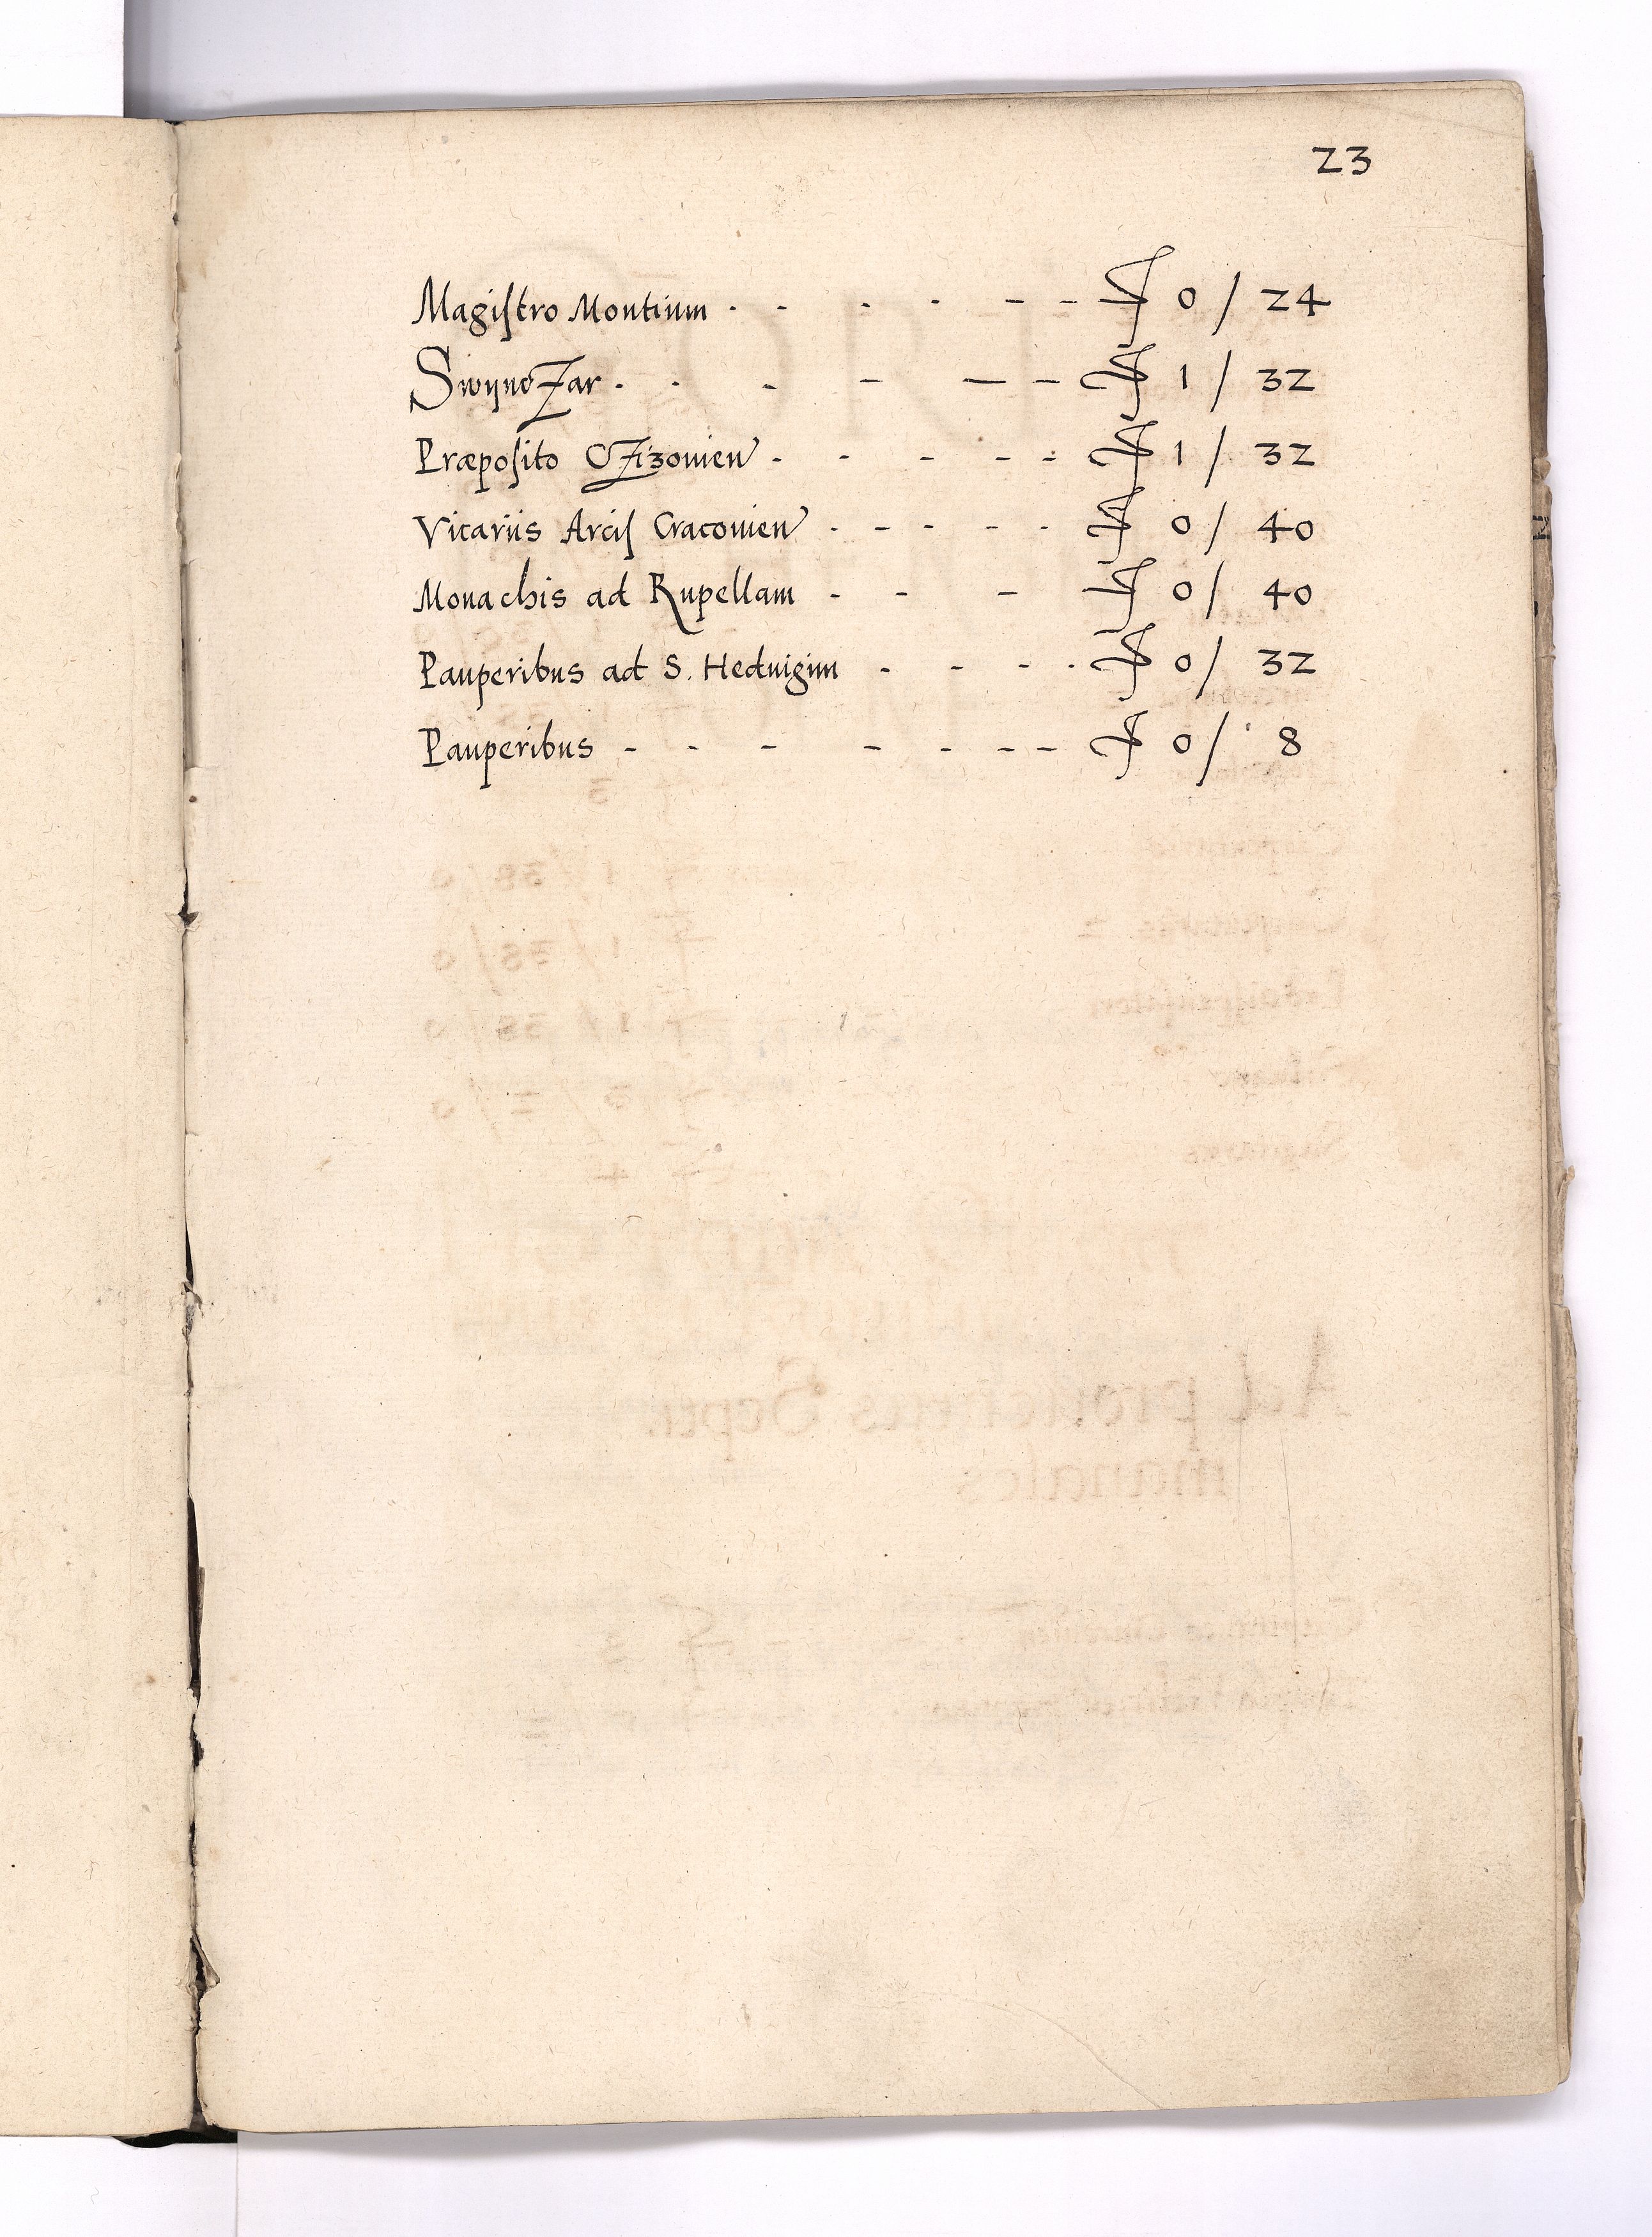 23
Magiſtro Montium . - - - - - ƒ 0 / 24
SwÿnoZar . - - - - - ƒ 1 / 32
Præpoſito CZizouien - - - - - ƒ 1 / 32
Vicariis Arciſ Cracouien - - - - - ƒ 0 / 40
Monachis ad Rupellam - - - ƒ 0 / 40
Pauperibus ad S. Heduigim - - - . ƒ 0 / 32
Pauperibus - - - - - - - ƒ 0 / 8